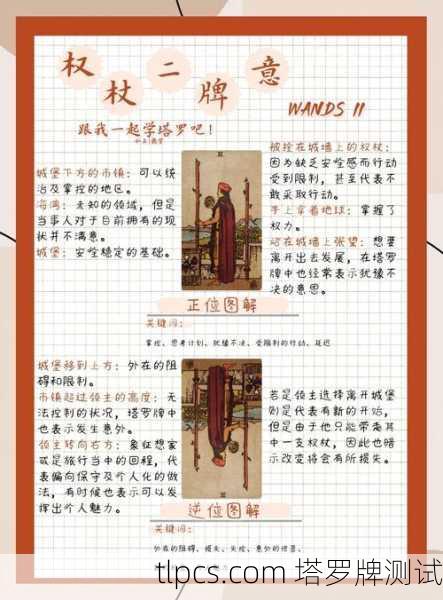 权杖二牌意
WANDS II
跟我一起学塔罗吧！
城堡下方的市镇：可以统
治及掌控的地区。
海湾：未知的领域，但是
当事人对于目前拥有的现
状并不满意。
城堡：安全稳定的基础。
被拴在城墙上的权杖：
因为缺乏安全感而行动
受到限制，甚至代表不
敢采取行动。
手上拿着地球：掌握了
权力。
站在城墙上张望：想要
离开出去发展，在塔罗
牌中也经常表示犹豫不
决的意思。
II
正位图解
关键词：
掌控、思考计划、犹豫不决、受限制的行动、延迟
城堡移到上方：外在的阻
碍和限制。
市镇超过领主的高度：无
法控制的状况，塔罗牌中
也表示发生意外。
领主转向右方：象征想家
或是旅行当中的回程，代
表偏向保守及个人化的做
法，有时候也表示可以发
挥出个人魅力。
若是领主选择离开城堡
则是代表有新的开始，
但是由于他只能带走其
中一支权杖，因此也暗
示改变将会有所损失。
逆位图解
关键词：
外在的阻碍、损失、失控、意外的惊喜、
tlpcs.com 塔罗牌测试